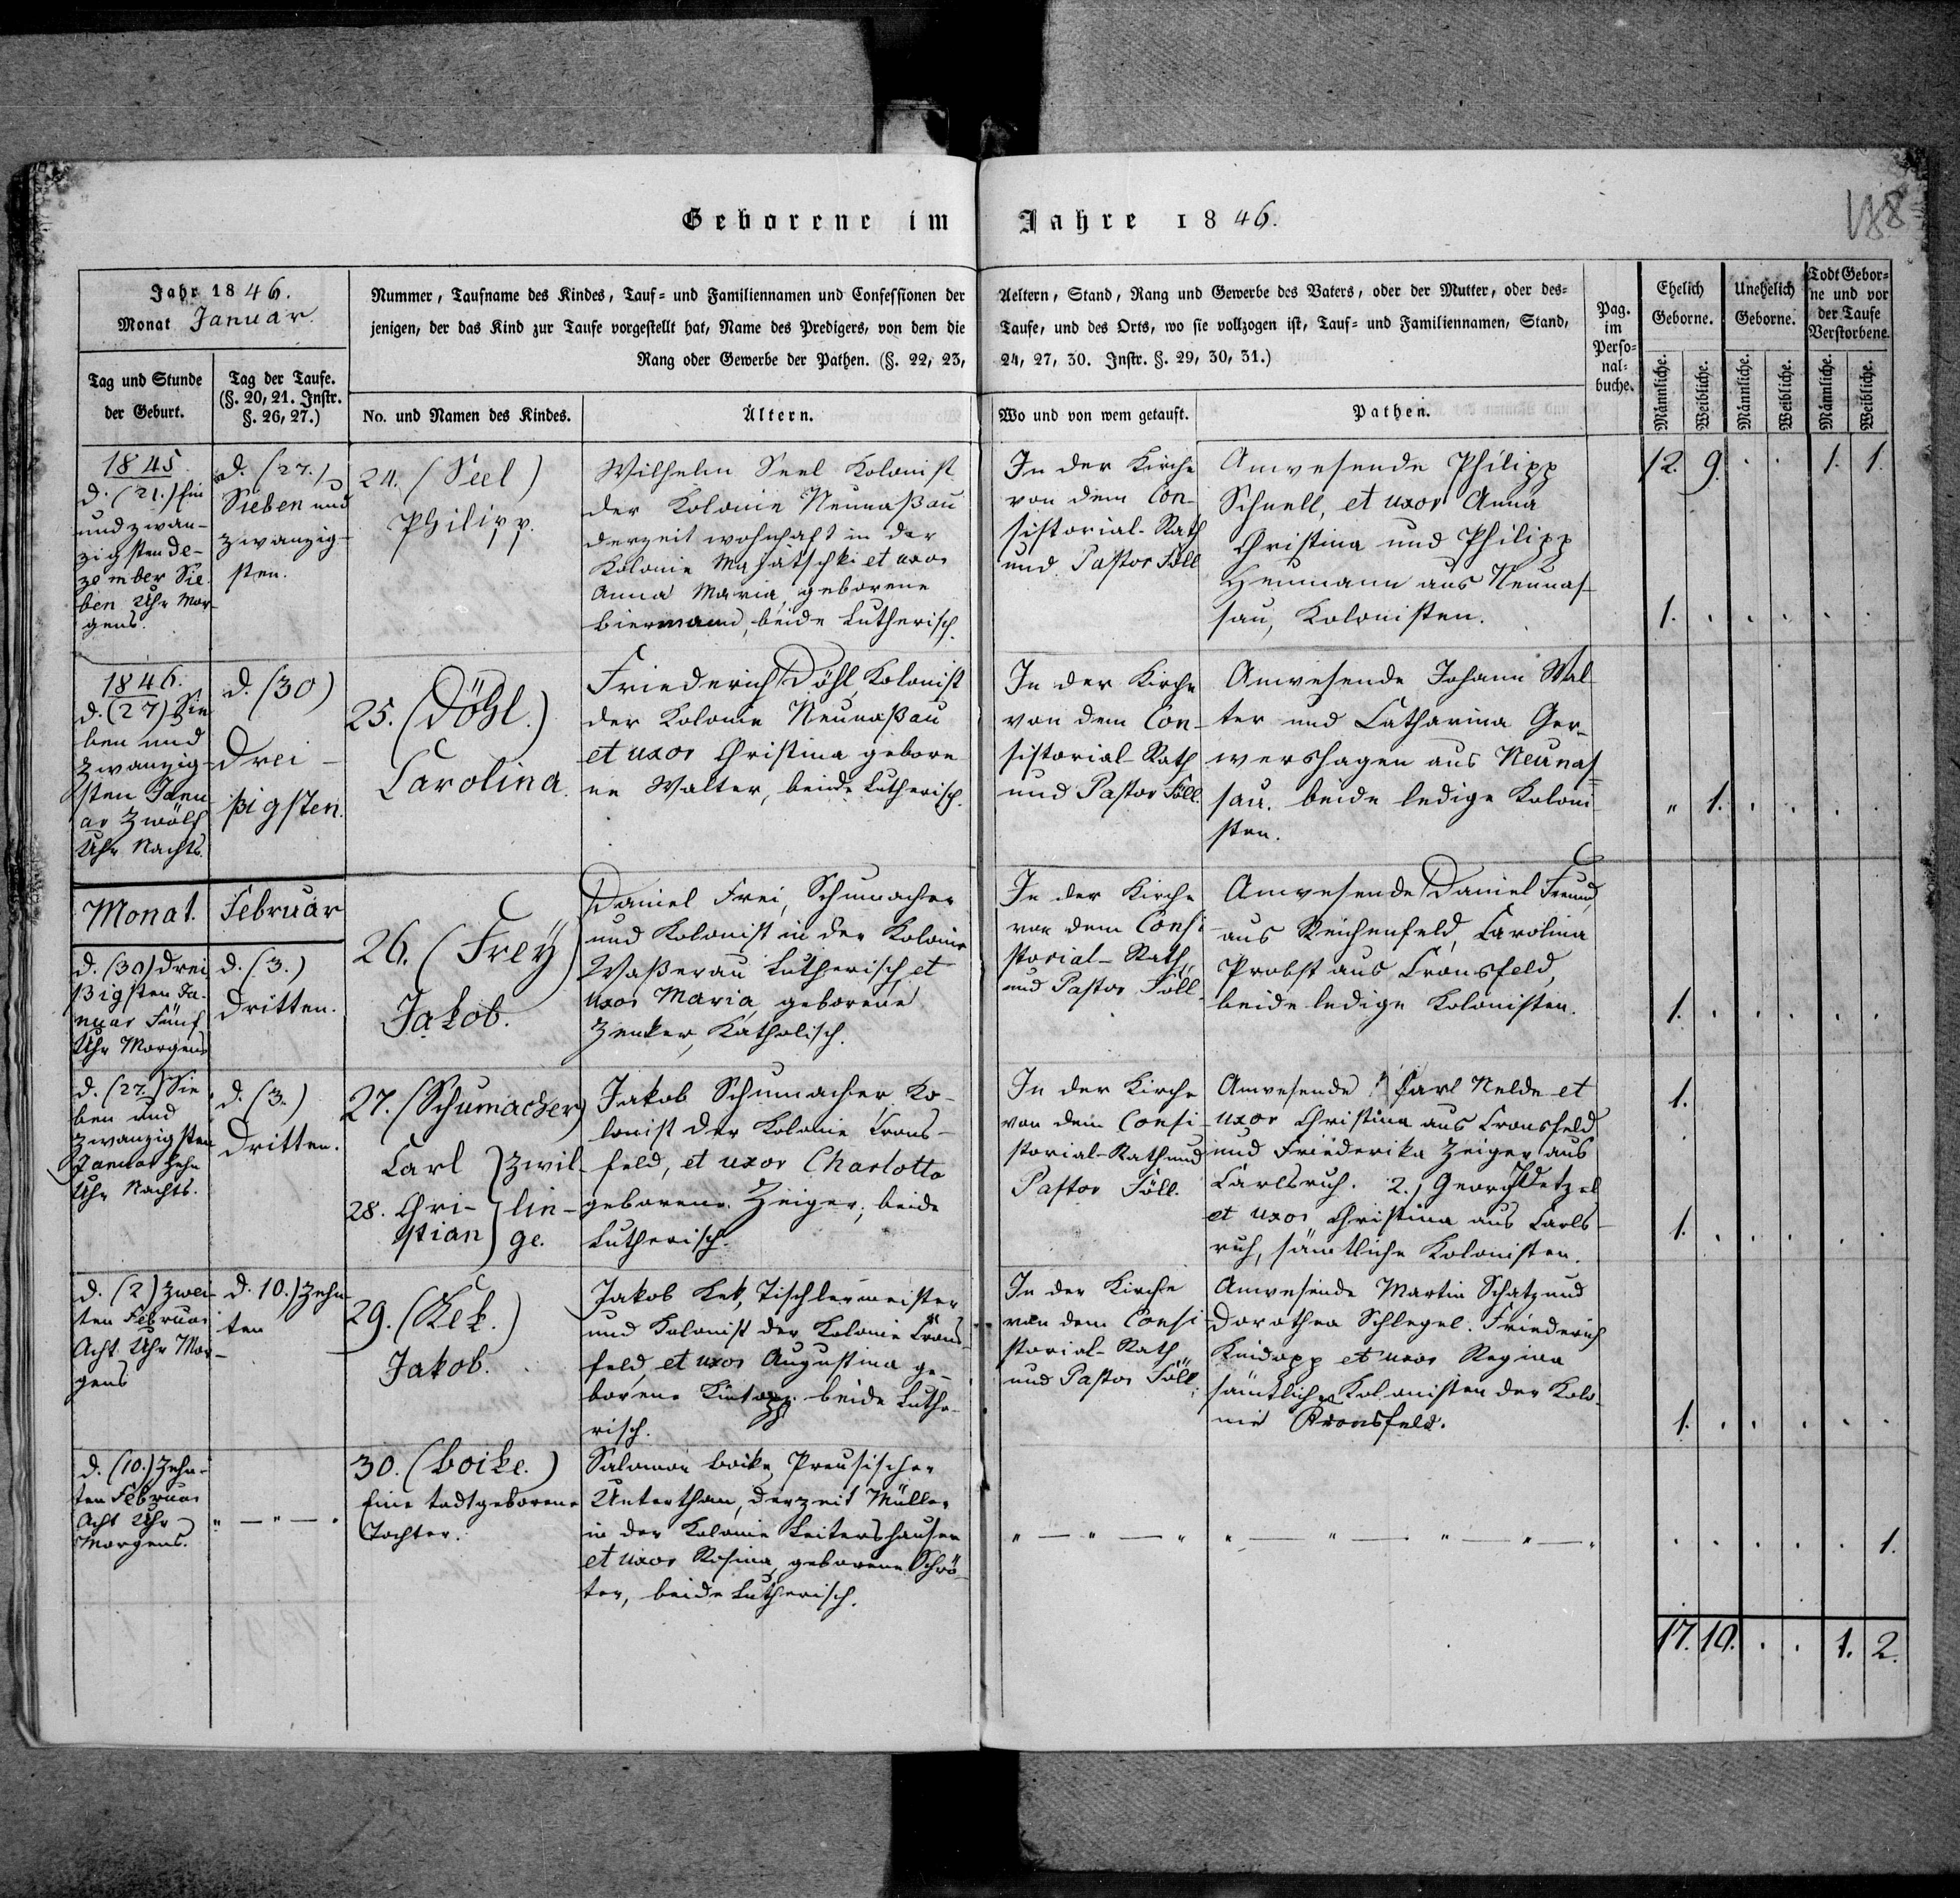 Geborene im Jahre 1846.
188
Jahr 1846.
Monat Januar.
Nummer, Taufname des Kindes, Tauf= und Familiennamen und Confessionen der Aeltern, Stand, Rang und Gewerbe des Vaters, oder der Mutter, oder des=
jenigen, der das Kind zur Taufe vorgestellt hat, Name des Predigers, von dem die Taufe, und des Orts, wo sie vollzogen ist, Tauf= und Familiennamen, Stand,
Rang oder Gewerbe der Pathen. (§. 22, 23, 24, 27, 30. Instr. §. 29, 30, 31.)
Pag.
im
Perso=
nal=
buche.
Ehelich
Geborne.
Unehelich
Geborne.
Todt Gebor=
ne und vor
der Taufe
Verstorbene.
Männliche.
Weibliche.
Männliche.
Weibliche.
Männliche.
Weibliche.
Tag und Stunde
der Geburt.
Tag der Taufe.
(§. 20, 21. Instr.
§. 26, 27.)
No. und Namen des Kindes.
Ältern.
Wo und von wem getauft.
Pathen.
1845.
d. (21.) Ein
und zwan-
zigsten De-
zember Sie-
ben Uhr Mor-
gens.
d. (27.)
Sieben und
zwanzig-
sten.
24. (Seel)
Philipp.
Wilhelm Seel Kolonist
der Kolonie Neunaßau
derzeit wohnhaft in der
Kolonie et uxor
Anna Maria, geborene
Biermann, beide Lutherisch.
In der Kirche
von dem Con-
sistorial-Rath
und Pastor Föll
Anwesende Philipp
Schnell, et uxor Anna
Christina und Philipp
Heumann aus Neunas-
sau, Kolonisten.
12. 9. . . 1. 1.
1. . . . . .
1846.
d. (27) Sie
ben und
zwanzig-
sten Janu
ar Zwölf
Uhr Nachts.
d. (30)
Drei-
ßigsten.
25. (Döhl.)
Carolina.
Friederich Döhl, Kolonist
der Kolonie Neunaßau
et uxor Christina gebore
ne Walter, beide Lutherisch.
In der Kirche
von dem Con-
sistorial-Rath
und Pastor Föll.
Anwesende Johann Wal-
ter und Catharina Ger-
wershagen aus Neunas=
sau. beide ledige Koloni
sten.
" 1. . . . .
Monat. Februar
d. (30) Drei
ßigsten Ja-
nuar Fünf
Uhr Morgens
d. (3.)
Dritten.
26. (Frey)
Jakob.
Daniel Frei, Schumacher
und Kolonist in der Kolonie
Waßerau Lutherisch, et
uxor Maria, geborene
Zenker, Katholisch.
In der Kirche
von dem Consi
storial-Rath,
und Pastor Föll.
Anwesende Daniel Freund,
aus Reichenfeld, Carolina
Probst aus Cronsfeld,
beide ledige Kolonisten.
1. . . . . .
d. (27.) Sie
ben und
zwanzigsten
Januar Zehn
Uhr Nachts.
d. (3.)
Dritten.
27. (Schumacher)
Carl } Zwil-
28. Chri- } lin-
stian } ge.
Jakob Schumacher, Ko-
lonist der Kolonie Crons-
feld, et uxor Charlotta
geborene Zeiger, beide
Lutherisch.
In der Kirche
von dem Consi-
storial-Rath und
Pastor Föll.
Anwesende 1) Carl Nelde et
uxor Christina aus Cronsfeld
und Friederika Zeiger aus
Carlsruh. 2.) Georg et
uxor Christina aus Carls-
ruh, sämtliche Kolonisten.
1.
1. . . . . .
d. (2) Zwei
ten Februar
Acht Uhr Mor-
gens
d. 10.) Zehn
ten
29. (Kek.)
Jakob.
Jakob Kek, Tischlermeister
und Kolonist der Kolonie Crons
feld, et uxor Augustina ge-
borene Kintopp, beide Luthe-
risch.
In der Kirche
von dem Consi-
storial-Rath
und Pastor Föll.
Anwesende Martin Schatz und
Dorothea Schlegel. Friederich
Kindopp et uxor Regina
sämtliche Kolonisten der Kolo-
nie Kronsfeld.
1. . . . . .
d. (10.) Zehn-
ten Februar
Acht Uhr
Morgens.
" — " — "
30. (Boike.)
Eine todtgeborene
Tochter.
Salomon Boike, Preusischer
Unterthan, derzeit Müller
in der Kolonie Leitershausen
et uxor Rosina, geborene Schrö-
ter, beide Lutherisch.
" — " — " " — " — " — " — "
. . . . . 1.
17. 10. . . 1. 2.